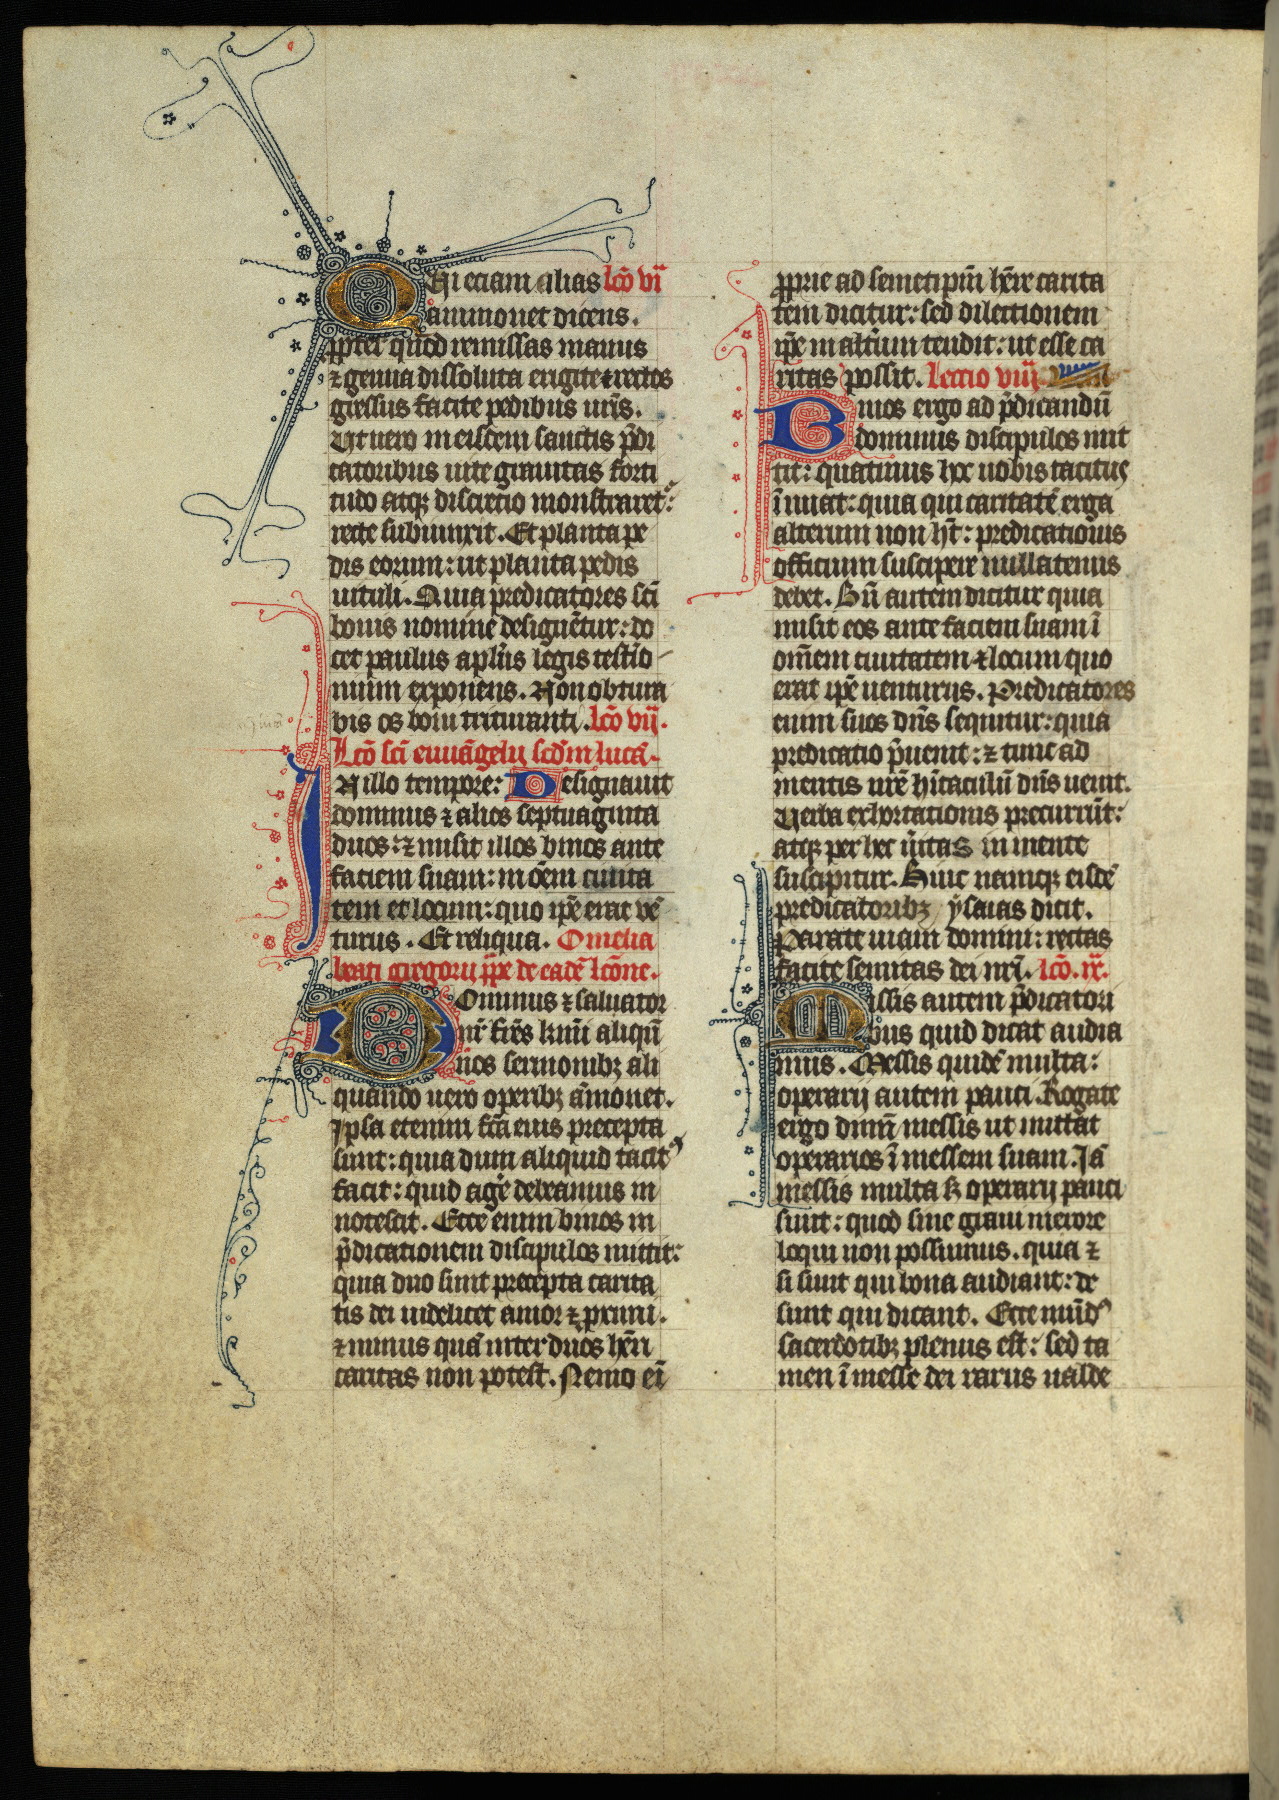 Qui eciam alias lcō vi
ammonet dicens.
ꝓpter quod remissas manus
⁊ genua dissoluta erigite ⁊ rectos
gressus facite pedibus ur̄is.
Ut uero in eisdem sanctis p̄di
catoribus uite grauitas forti
tudo atqꝫ discretio monstraret᷑:
recte subiunxit. Et planta pe
dis eorum: ut planta pedis
uituli. Quia predicatores sc̄i
bouis nomine designētur: do
cet paulus apl̄us legis testīo
nium exponens. Non obtura
bis os boui trituranti. lcō vii.
Lcō sc̄i euuāgelii scd̄m lucā.
In illo tempore: Designauit
dominus ⁊ alios septuaginta
duos: ⁊ misit illos binos ante
faciem suam: in oēm ciuita
tem et locum: quo ip̄e erat vē
turus. Et reliqua. Omelia
beati gregorii pp̄e de eadē lcōne.
Dominus ⁊ saluator
nr̄ fr̄es km̄i aliqn̄
nos sermonibꝫ ali
quando uero operibꝫ āmonet.
Ipsa etenim fc̄a eius precepta
sunt: quia dum aliquid tacitꝰ
facit: quid agē debeamus in
notescit. Ecce enim binos in
p̄dicationem discipulos mittit:
quia duo sunt precepta carita
tis dei uidelicet amor ⁊ ꝓximi.
⁊ minus quā inter duos hēri
caritas non potest. Nemo eī
ꝓprie ad semetipm̄ hēre carita
tem dicitur: sed dilectionem
ip̄e in alt̄um tendit: ut esse ca
ritas possit. Lectio viii.
Binos ergo ad p̄dicandū
dominus discipulos mit
tit: quatinus hec nobis tacitus
īnuat: quia qui caritatē erga
alterum non ht̄: predicationis
officium suscipere nullatenus
debet. Bn̄ autem dicitur quia
misit eos ante faciem suam ī
om̄em ciuitatem ⁊ locum quo
erat ip̄e uenturus. Predicatores
enim suos dn̄s sequitur: quia
predicatio p̄uenit: ⁊ tunc ad
mentis nr̄e hītaculū dn̄s uenit.
Uerba exhortationis precurrūt:
atqꝫ per hec ūitas in mente
suscipitur. Hinc namqꝫ eisdē
predicatoribꝫ ysaias dicit.
Parate uiam domini: rectas
facite semitas dei nr̄i. lcō. ix.
Missis autem p̄dicatori
bus quid dicat audia
mus. Messis quidē multa:
operarii autem pauci. Rogate
ergo dnm̄ messis ut mittat
operarios ī messem suam. Ja
messis multa sꝫ operarii pauci
sunt: quod sine graui merore
loqui non possumus. quia ⁊
si sunt qui bona audiant: de
sunt qui dicant. Ecce mūdꝰ
sacerdotibꝫ plenus est: sed ta
men ī messe dei rarus ualde